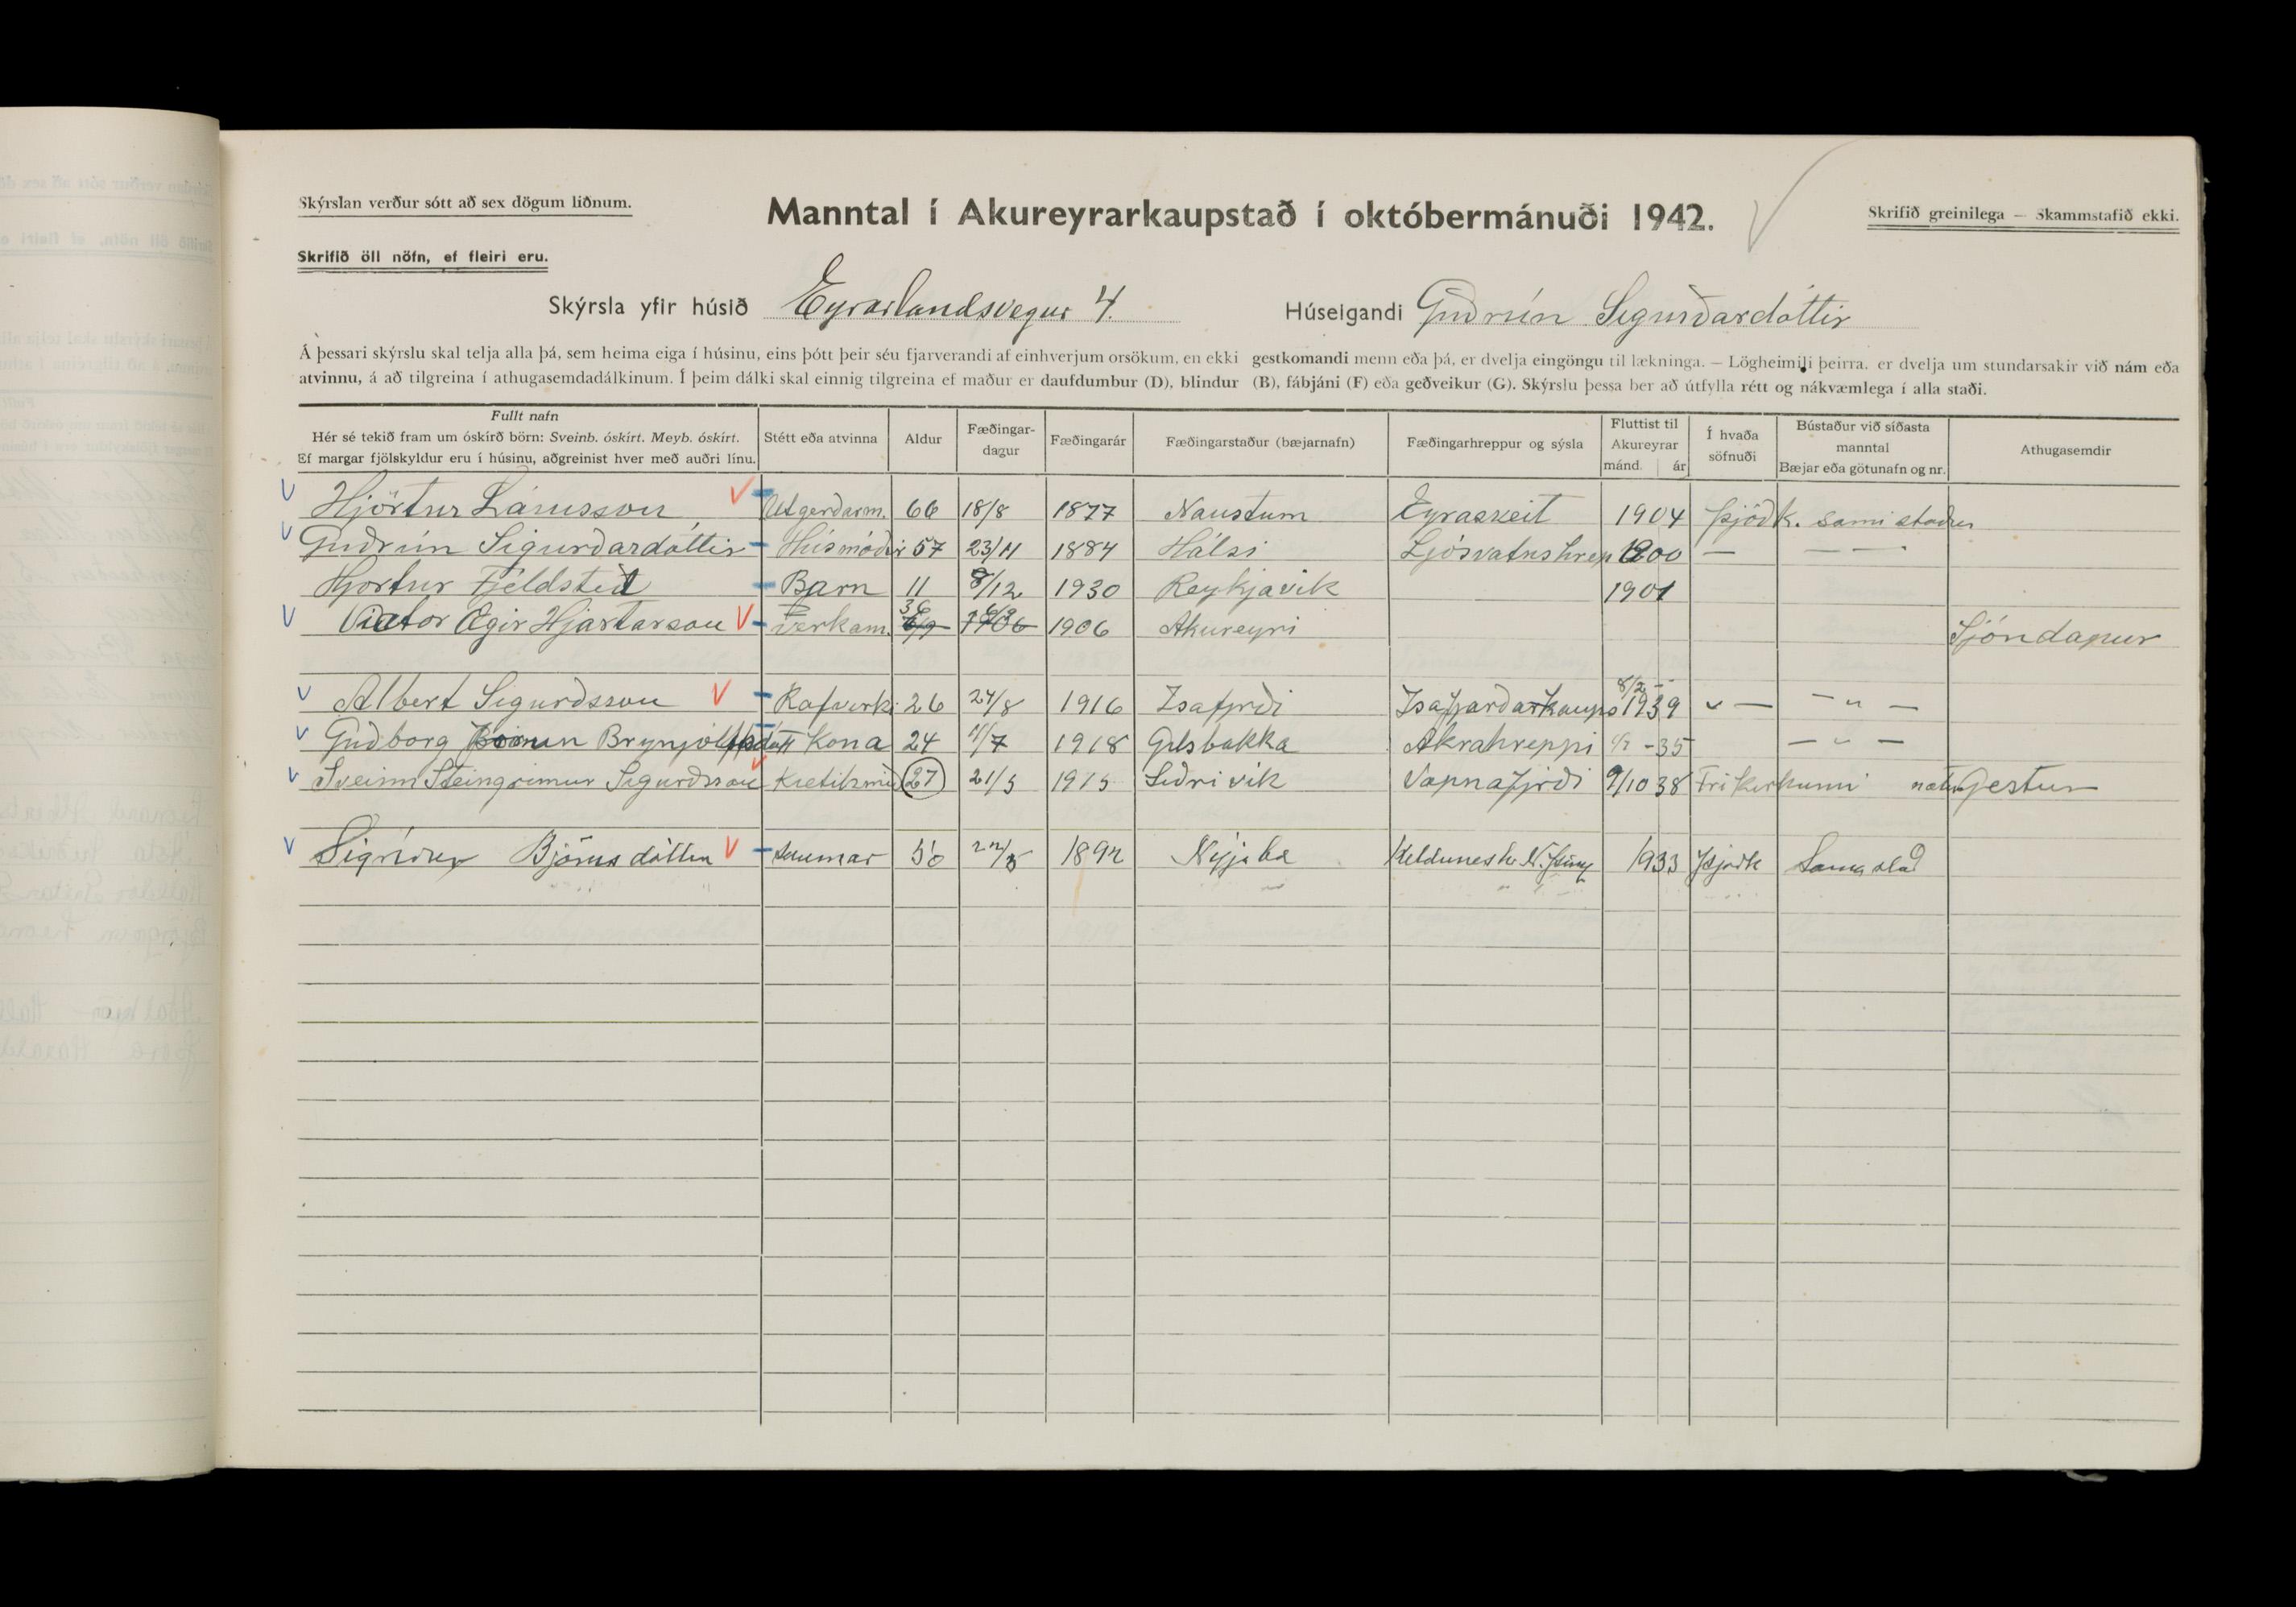 Skýrslan verður sótt að sex dögum liðnum.
Manntal í Akureyrarkaupstað í októbermánuði 1942.
Skrifið greinilega — Skammstafið ekki.
Skrifið öll nöfn, ef fleiri eru.
Skýrsla yfir húsið Eyrarlandsvegur 4. Húseigandi Guðrún Sigurðardóttir
Á þessari skýrslu skal telja alla þá, sem heima eiga í húsinu, eins þótt þeir séu fjarverandi af einhverjum orsökum, en ekki gestkomandi menn eða þá, er dvelja eingöngu til lækninga. — Lögheimili þeirra, er dvelja um stundarsakir við nám eða
atvinnu, á að tilgreina í athugasemdadálkinum. Í þeim dálki skal einnig tilgreina ef maður er daufdumbur (D), blindur (B), fábjáni (F) eða geðveikur (G). Skýrslu þessa ber að útfylla rétt og nákvæmlega í alla staði.
Fullt nafn
Hér sé tekið fram um óskírð börn: Sveinb. óskírt. Meyb. óskírt.
Ef margar fjölskyldur eru í húsinu, aðgreinist hver með auðri línu.
Stétt eða atvinna
Aldur
Fæðingar-
dagur
Fæðingarár
Fæðingarstaður (bæjarnafn)
Fæðingarhreppur og sýsla
Fluttist til
Akureyrar
mánd. ár
Í hvaða
söfnuði
Bústaður við síðasta
manntal
Bæjar eða götunafn og nr.
Athugasemdir
Hjörtur Lárusson Utgerdarm. 66 18/8 1877 Naustum Eyrasveit 1904 Þjóðk. sami staður
Guðrún Sigurðardóttir Húsmóðir 57 23/11 1884 Hálsi Ljósvatnshrep 1900 — — —
Hjortur Fjeldsted Barn 11 8/12 1930 Reykjavik 1901
Victor Ægir Hjartarson verkam. 36 1906 Akureyri Sjóndapur
Albert Sigurðsson Rafvirki 26 24/8 1916 Isafirði Isafjarðarkaups 8/2 1939 — — " —
Guðborg Brynjólfsdótt Kona 24 11/7 1918 Gilsbakka Akrahreppi -35 — " —
Sveinn Steingrimur Sigurðsson Ketilsmið 27 21/5 1915 Leidrivik Vopnafirði 9/10 38 Frikirkjunni Gestur
Sigríður Björnsdóttir saumar 50 1892 Nýjabæ Kelduneshr N. Þing 1933 Þjóðk Sama stað